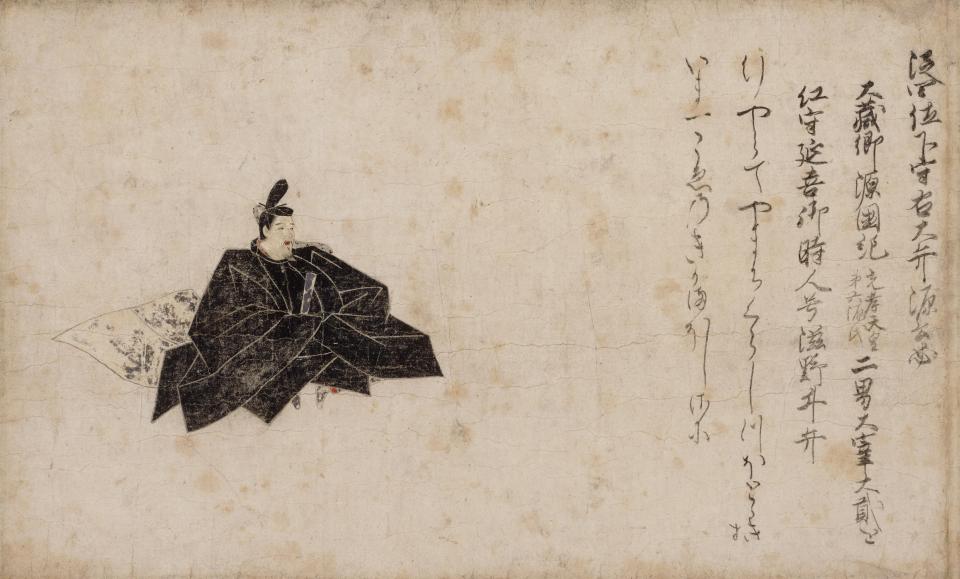 従四位下守右大弁源公忠
大蔵卿源国紀光孝天皇第六源氏二男大宰大貳近
江守延喜御時人号滋野井弁
行やらてやまちくらしつほとゝきす
いま一こゑのきかまほしさに